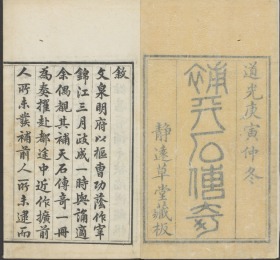 道光庚寅仲冬
補天石傳奇
靜遠草堂藏板
敘
文泉明府以樞曹功蔭作宰
錦江三月政成一時與誦適
余偶覩其補天石傳奇一冊
為奏擢赴都途中近作擴前
人所未發補前人所未運而